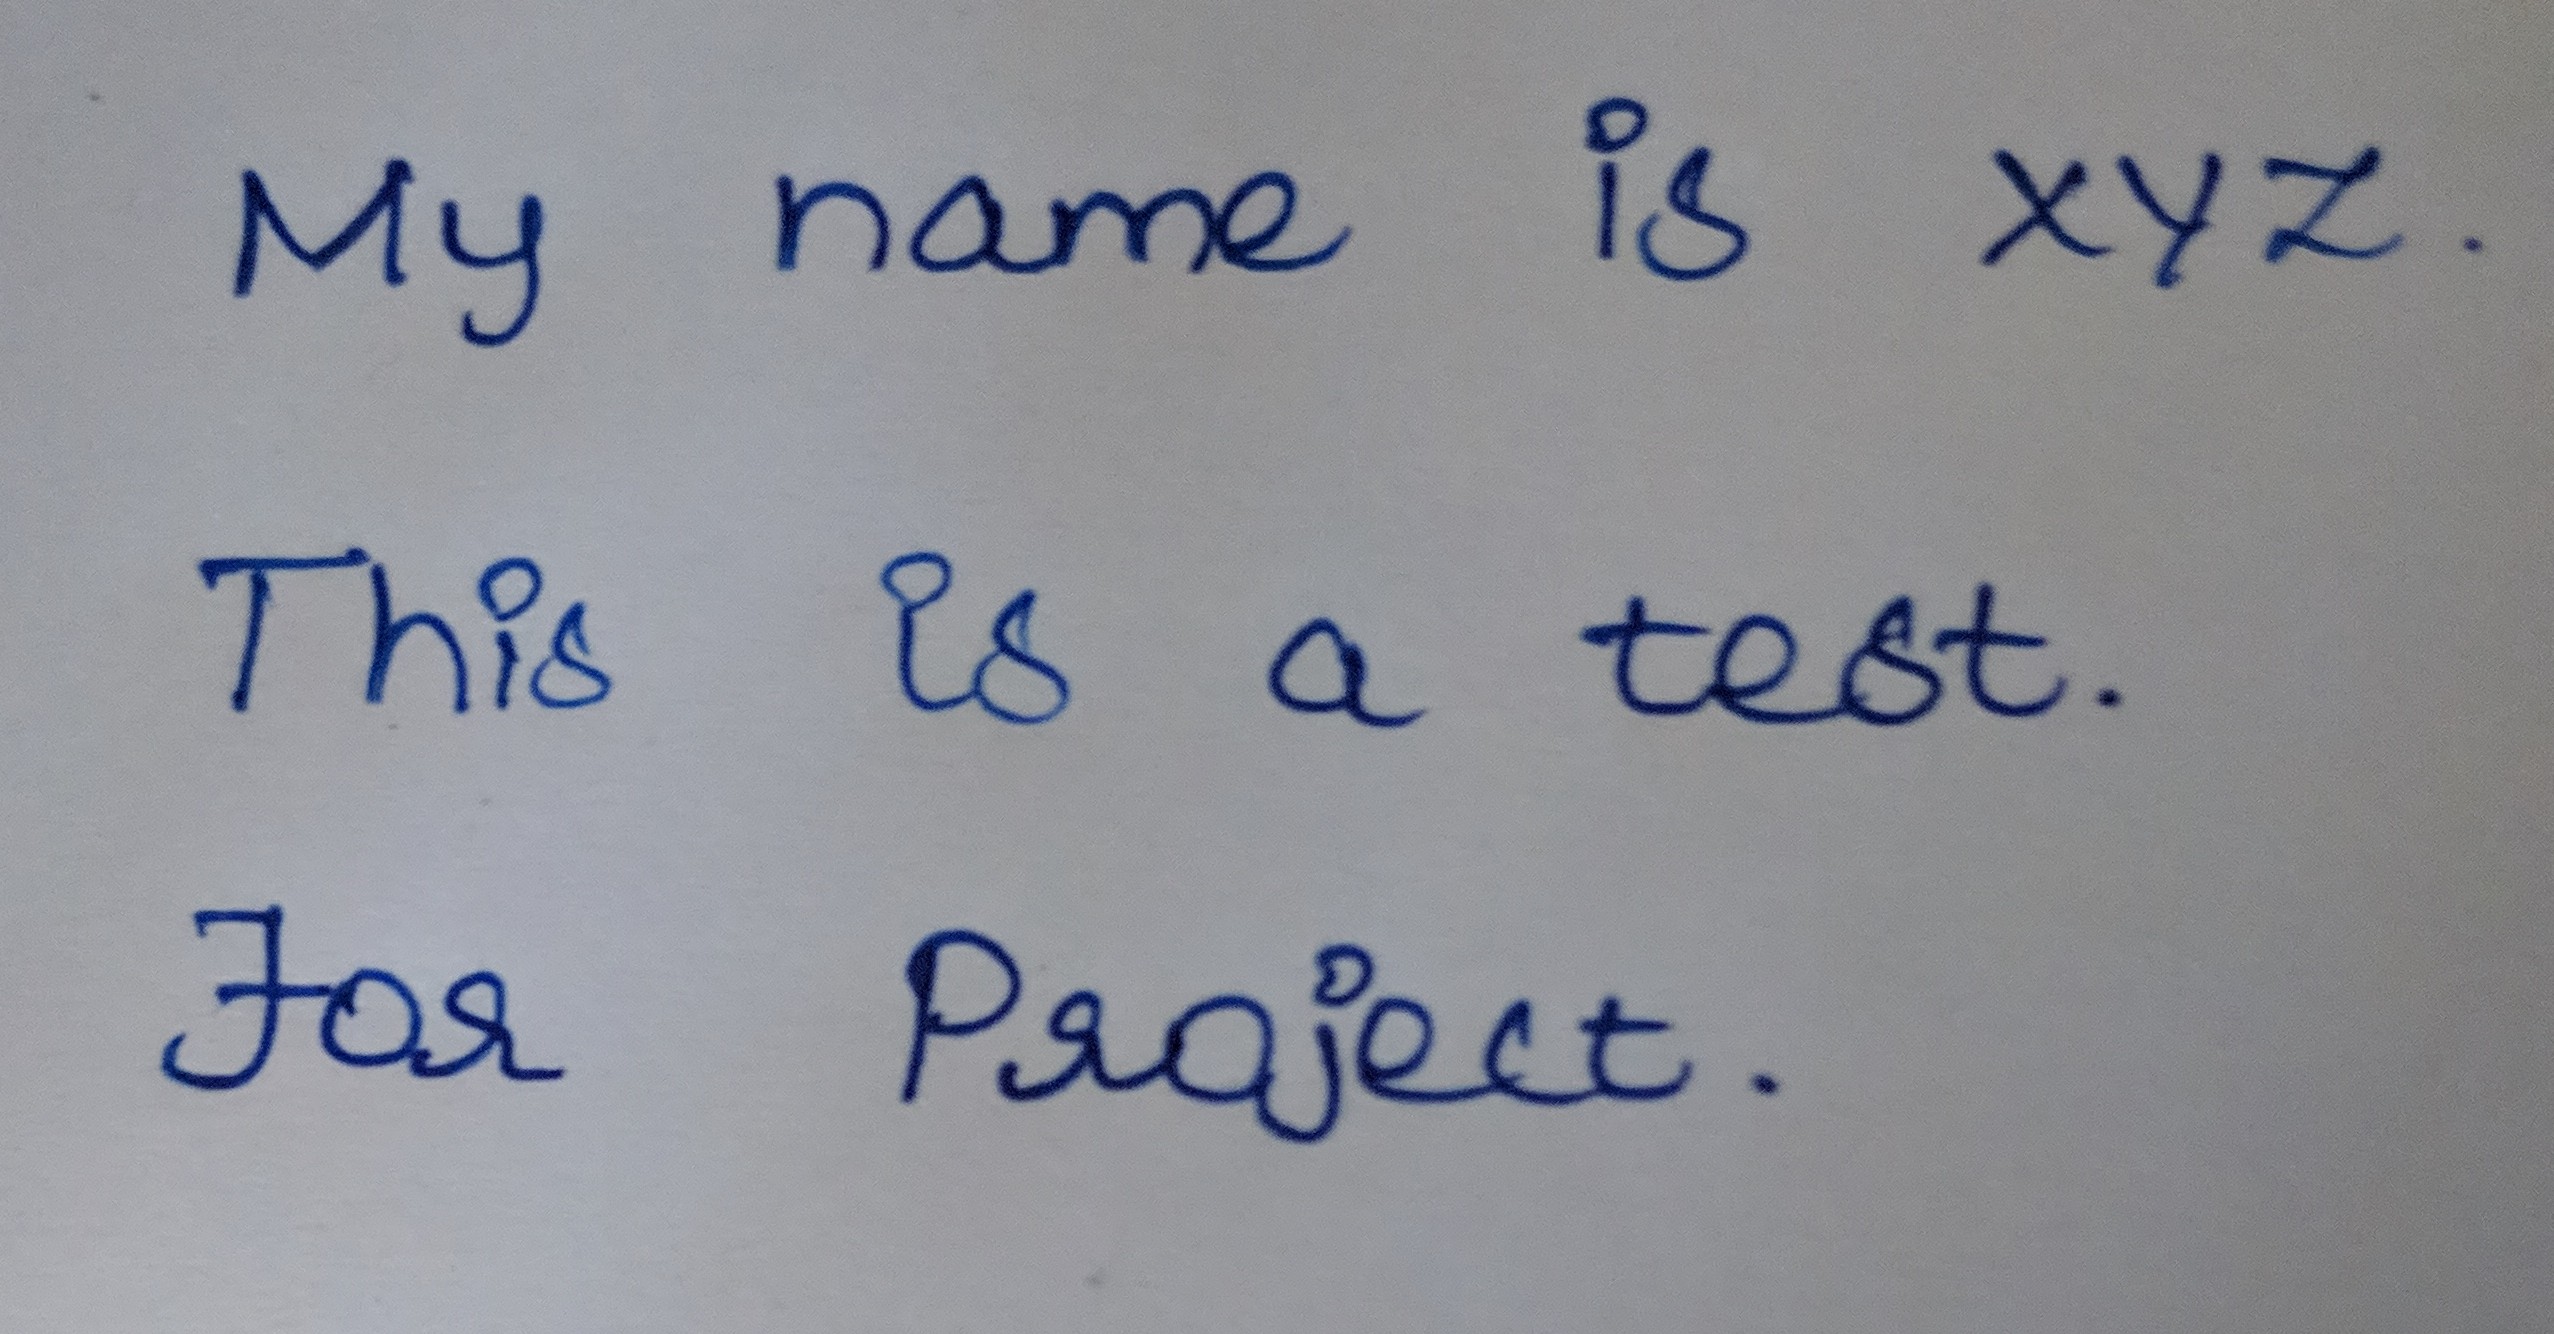 My name is xyz.
This is a test.
For Project.